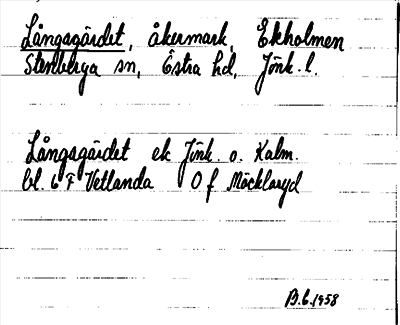 Långsgärdet, åkermark, Ekholmen
Stenberga sn, Östra hd, Jönk. l.
Långsgärdet ek Jönk. o. Kalm.
bl. 6 F Vetlanda O f Möcklaryd
B.G. 1958